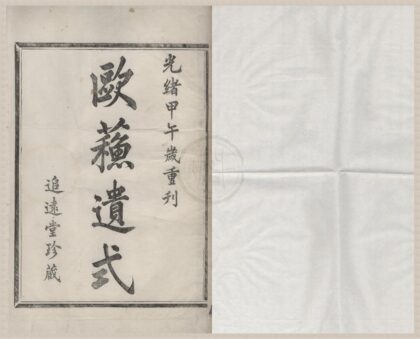 光緒甲午歲重刊
歐蘓遺式
追遠堂珍藏